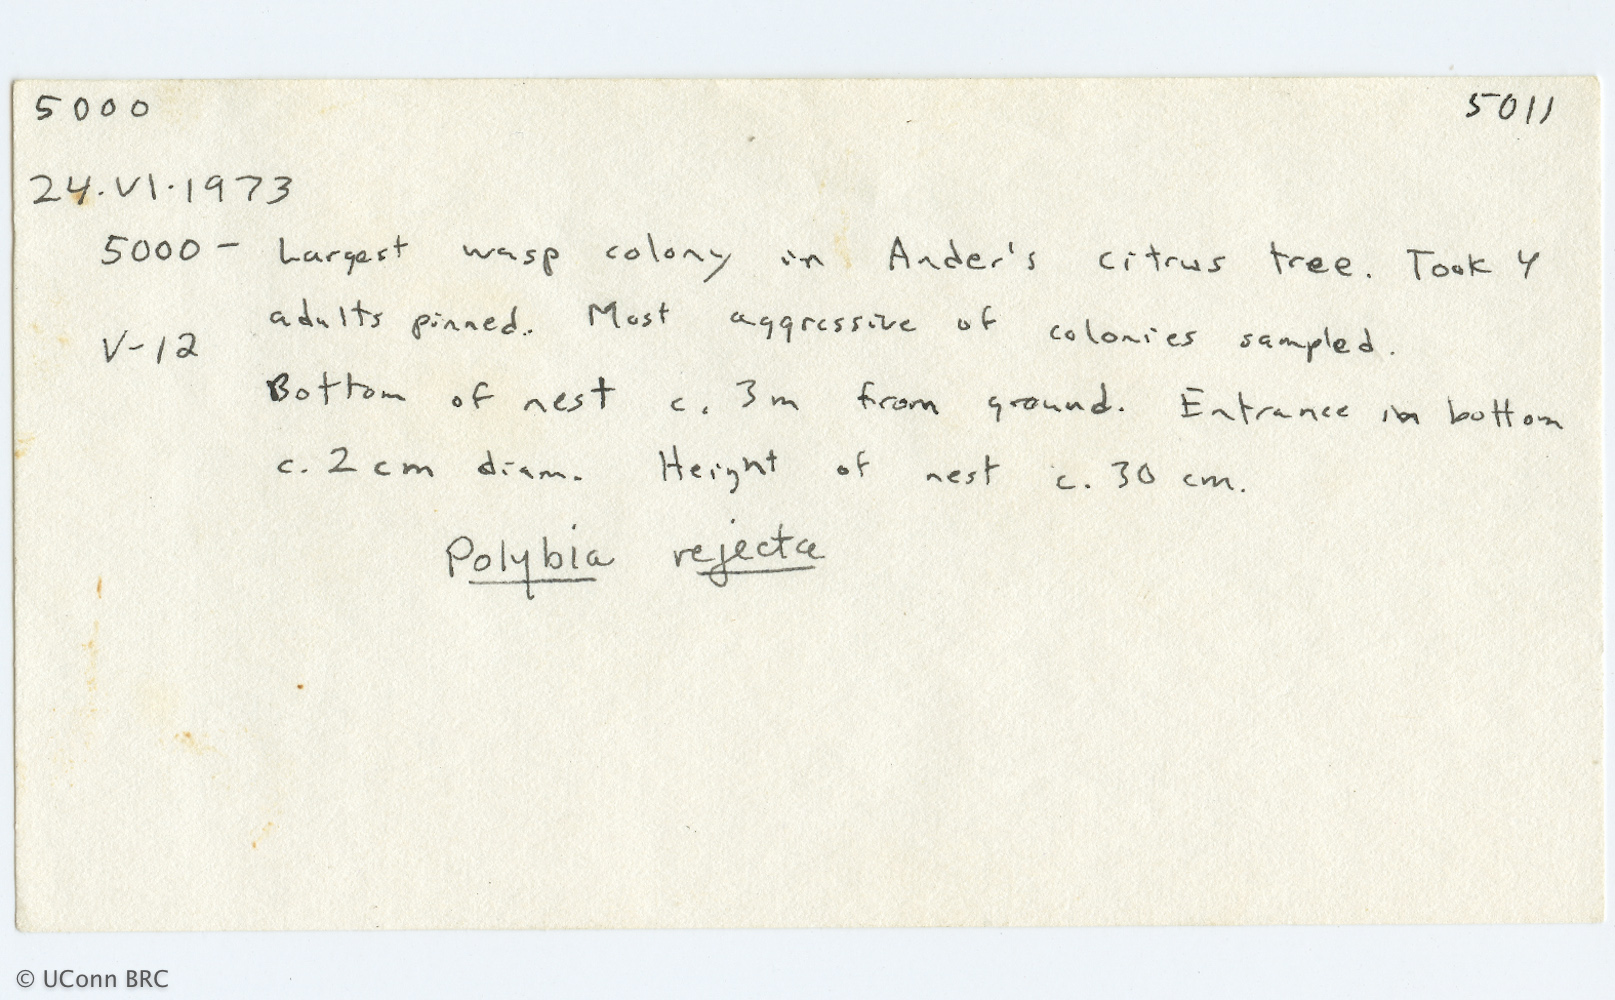 5000 5011
24.VI.1973
5000 - Largest wasp colony in Ander's citrus tree. Took 4
adults pinned. Most aggressive of colonies sampled.
V-12
Bottom of nest c. 3m from ground. Entrance in bottom
c. 2 cm diam. Height of nest c. 30 cm.
Polybia rejecta
© UConn BRC